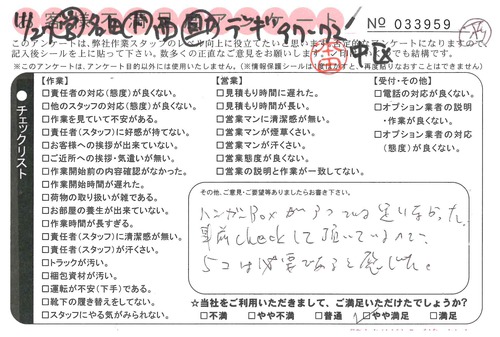 No 033959
このアンケートは、弊社作業スタッフのレベル向上に役立てたいと思います。否定的なアンケートになりますので、
記入後シールを上に貼って下さい。数多くの正直なご意見をお願いします。匿名でも結構です。
※このアンケートは、アンケート目的以外には使用いたしません。(※情報保護シールは1度はがすと、再度貼りなおすことはできません)
中区
チェックリスト
【作業】
□責任者の対応(態度)が良くない。
□他のスタッフの対応(態度)が良くない。
□作業を見ていて不安がある。
□責任者(スタッフ)に好感が持てない。
□お客様への挨拶が出来ていない。
□ご近所への挨拶・気遣いが無い。
□作業開始前の内容確認がなかった。
□作業開始時間が遅れた。
□荷物の取り扱いが雑である。
□お部屋の養生が出来ていない。
□作業時間が長すぎる。
□責任者(スタッフ)に清潔感が無い。
□責任者(スタッフ)が汗くさい。
□トラックが汚い。
□梱包資材が汚い。
□運転が不安(下手)である。
□靴下の履き替えをしてない。
□スタッフにやる気がみられない。
【営業】
□見積もり時間に遅れた。
□見積もり時間が長い。
□営業マンに清潔感が無い。
□営業マンが煙草くさい。
□営業マンが汗くさい。
□営業態度が良くない。
□営業の説明と作業が一致してない。
【受付・その他】
□電話の対応が良くない。
□オプション業者の説明
・作業が良くない。
□オプション業者の対応
(態度)が良くない。
その他、ご意見・ご要望等ありましたらお書き下さい。
ハンガーBoxが3つでは足りなかった。
事前checkして頂いているので、
5コは必要であると感じた。
☆当社をご利用いただきまして、ご満足いただけたでしょうか?
□不満 □やや不満 □普通 □やや満足 □満足